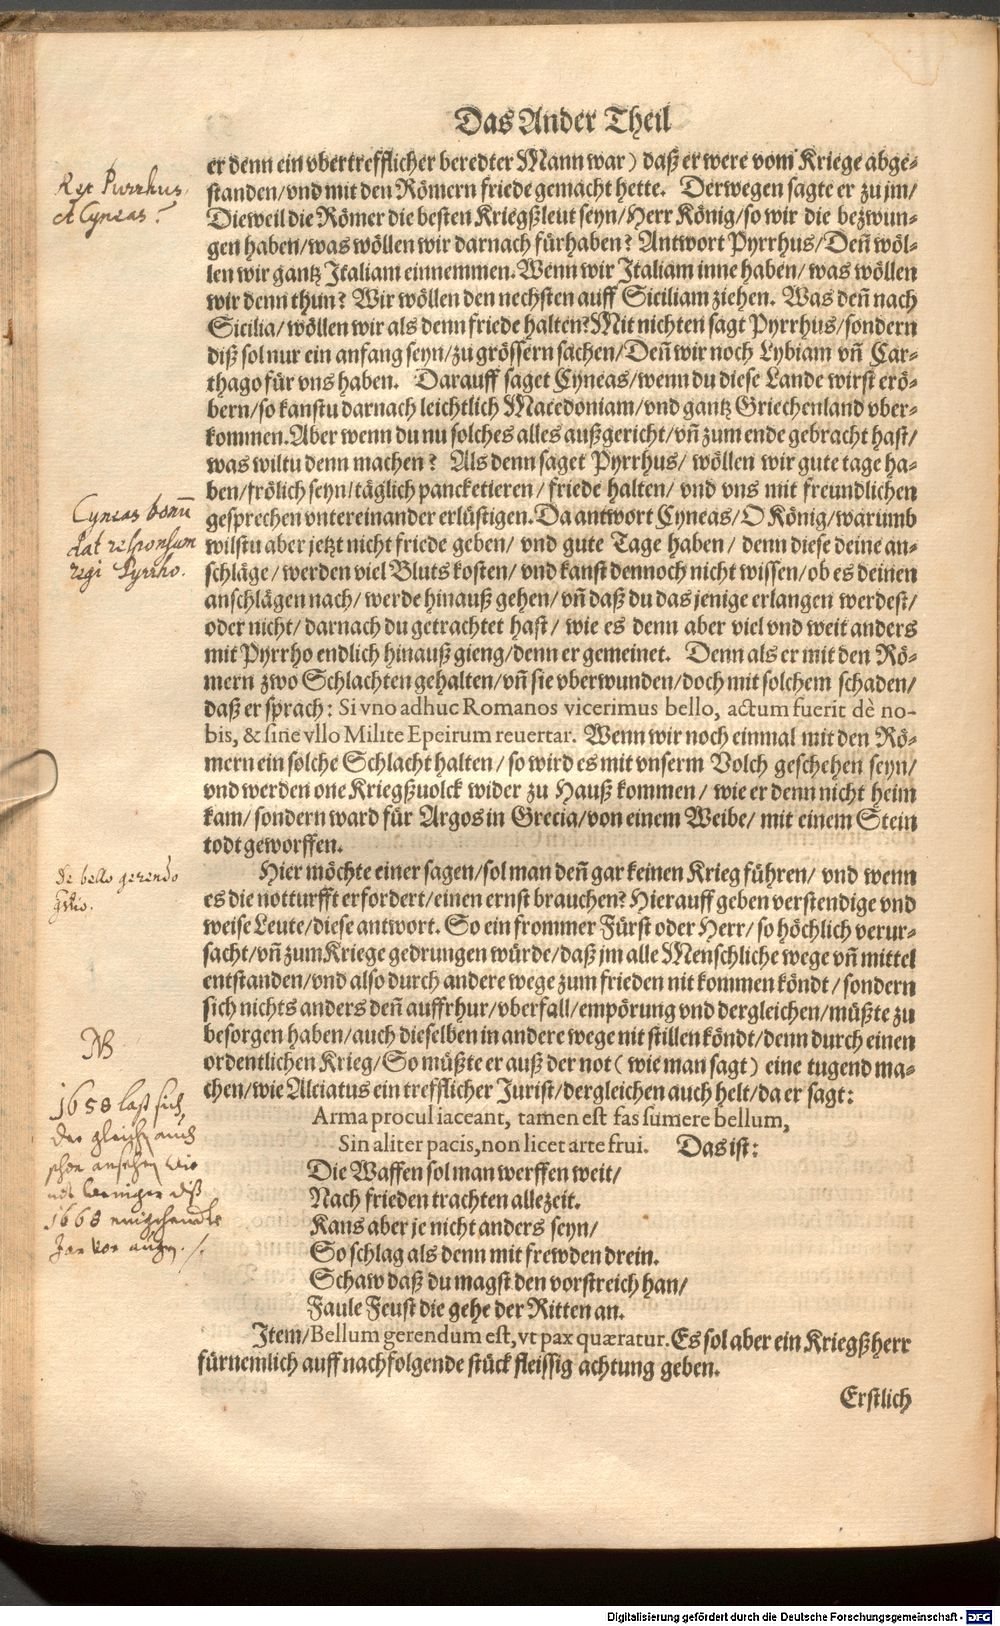 Das Ander Theil
er denn ein vbertrefflicher beredter Mann war) daß er were vom Kriege abge-
standen/vnd mit den Römern friede gemacht hette. Derwegen sagte er zu jm/
Dieweil die Römer die besten Kriegßleut seyn/Herr König/so wir die bezwun-
gen haben/was wöllen wir darnach fürhaben? Antwort Pyrrhus/Deñ wöl-
len wir gantz Italiam einnemmen. Wenn wir Italiam inne haben/was wöllen
wir denn thun? Wir wöllen den nechsten auff Siciliam ziehen. Was deñ nach
Sicilia/wöllen wir als denn friede halten? Mit nichten sagt Pyrrhus/sondern
diß sol nur ein anfang seyn/zu grössern sachen/Deñ wir noch Lybiam vñ Car-
thago für vns haben. Darauff saget Cyneas/wenn du diese Lande wirst erö-
bern/so kanstu darnach leichtlich Macedoniam/vnd gantz Griechenland vber-
kommen. Aber wenn du nu solches alles außgericht/vñ zum ende gebracht hast/
was wiltu denn machen? Als denn saget Pyrrhus/wöllen wir gute tage ha-
ben/frölich seyn/täglich pancketieren/friede halten/vnd vns mit freundlichen
gesprechen vntereinander erlüstigen. Da antwort Cyneas/O König/warumb
wilstu aber jetzt nicht friede geben/vnd gute Tage haben/denn diese deine an-
schläge/werden viel Bluts kosten/vnd kanst dennoch nicht wissen/ob es deinen
anschlägen nach/werde hinauß gehen/vñ daß du das jenige erlangen werdest/
oder nicht/darnach du getrachtet hast/wie es denn aber viel vnd weit anders
mit Pyrrho endlich hinauß gieng/denn er gemeinet. Denn als er mit den Rö-
mern zwo Schlachten gehalten/vñ sie vberwunden/doch mit solchem schaden/
daß er sprach: Si vno adhuc Romanos vicerimus bello, actum fuerit dè no-
bis, & sine vllo Milite Epeirum reuertar. Wenn wir noch einmal mit den Rö-
mern ein solche Schlacht halten/so wird es mit vnserm Volch geschehen seyn/
vnd werden one Kriegßuolck wider zu Hauß kommen/wie er denn nicht heim
kam/sondern ward für Argos in Grecia/von einem Weibe/mit einem Stein
todt geworffen.
Hier möchte einer sagen/sol man deñ gar keinen Krieg führen/vnd wenn
es die notturfft erfordert/einen ernst brauchen? Hierauff geben verstendige vnd
weise Leute/diese antwort. So ein frommer Fürst oder Herr/so höchlich verur-
sacht/vñ zum Kriege gedrungen würde/daß jm alle Menschliche wege vñ mittel
entstanden/vnd also durch andere wege zum frieden nit kommen köndt/sondern
sich nichts anders deñ auffrhur/vberfall/empörung vnd dergleichen/müßte zu
besorgen haben/auch dieselben in andere wege nit stillen köndt/denn durch einen
ordentlichen Krieg/So müßte er auß der not (wie man sagt) eine tugend ma-
chen/wie Alciatus ein trefflicher Jurist/dergleichen auch helt/da er sagt:
Arma procul iaceant, tamen est fas sumere bellum,
Sin aliter pacis, non licet arte frui. Das ist:
Die Waffen sol man werffen weit/
Nach frieden trachten allezeit.
Kans aber je nicht anders seyn/
So schlag als denn mit frewden drein.
Schaw daß du magst den vorstreich han/
Faule Feust die gehe der Ritten an.
Item/Bellum gerendum est, vt pax quæratur. Es sol aber ein Kriegßherr
fürnemlich auff nachfolgende stück fleissig achtung geben.
Erstlich
Rex Purrhus
et Cyneas
Cyneas bonũ
dat responsum
regi Pyrrho.
de bello gerendo
NB
1658 last sich
der gleich auch
schon ansehen
weniger diß
1668
Jar vor augen
Digitalisierung gefördert durch die Deutsche Forschungsgemeinschaft - DFG